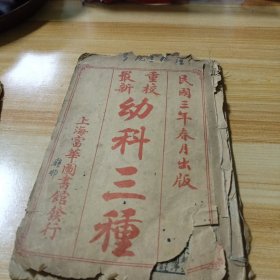 民國三年春月出版
重校
最新
幼科三種
上海富華圖書館發行